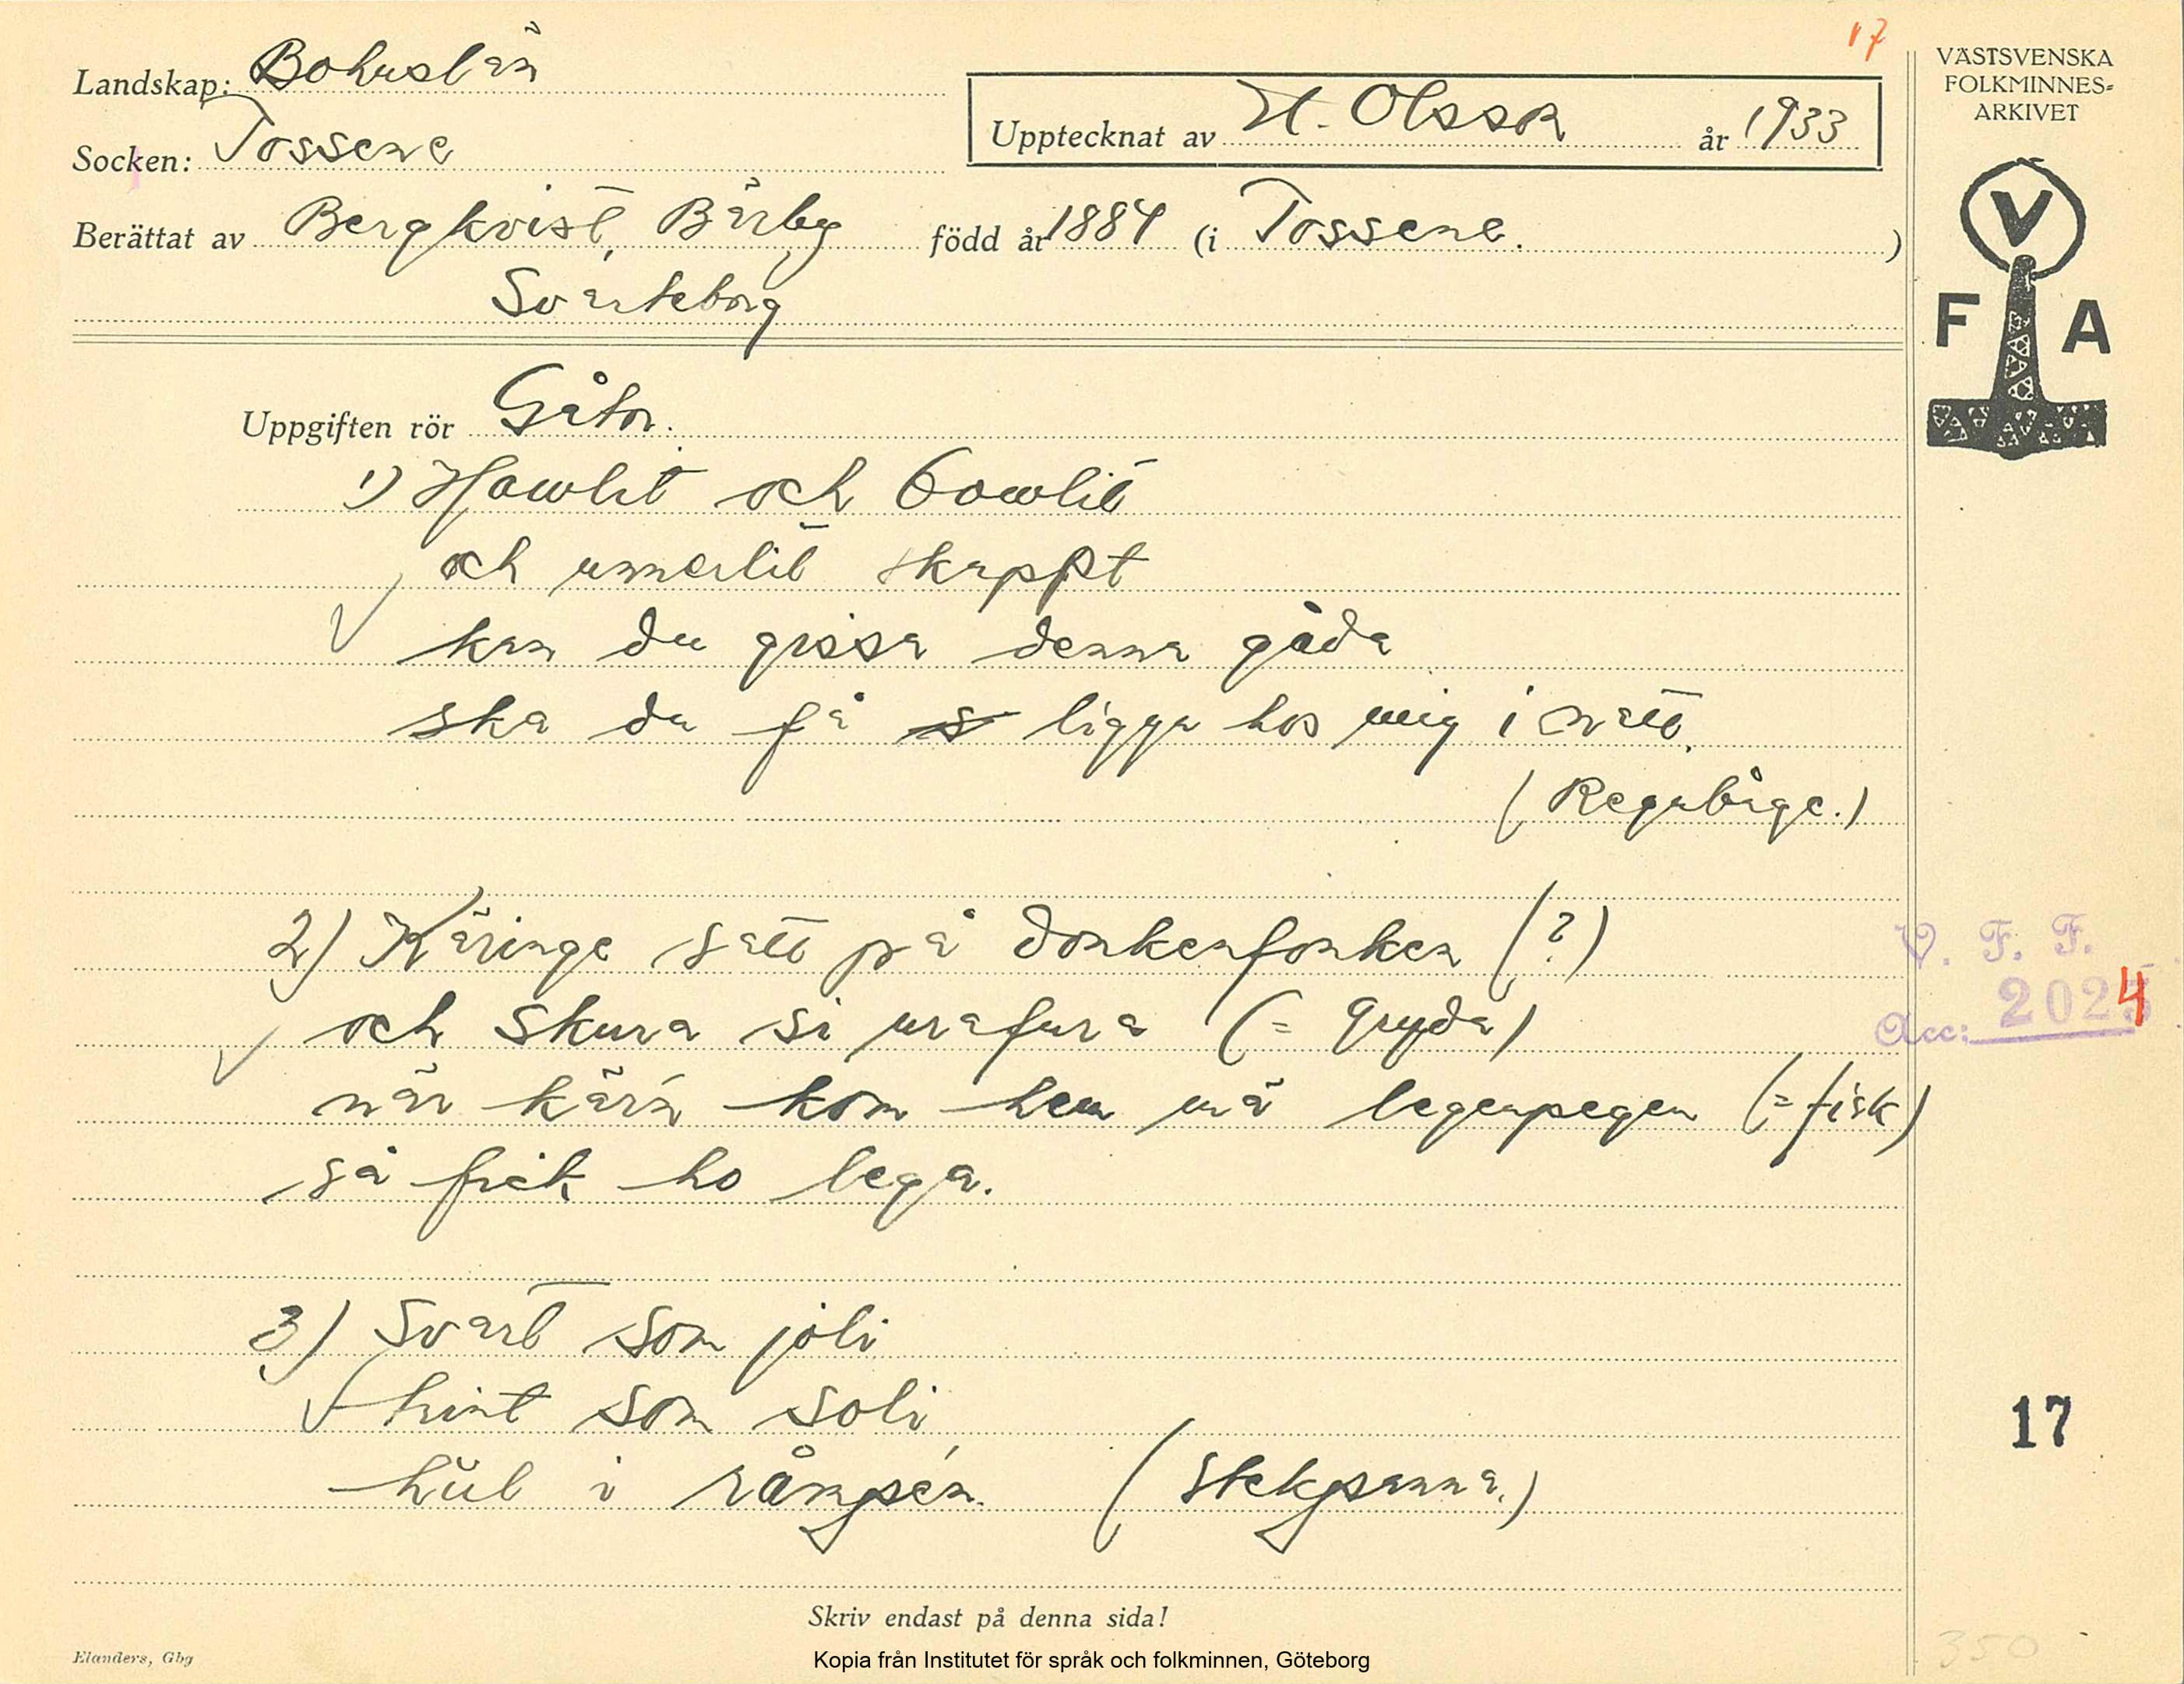 17
Landskap: Bohuslän
VÄSTSVENSKA
FOLKMINNES-
ARKIVET
Upptecknat av H. Olsson år 1933
Socken: Tossene
Berättat av Bergkvist, Bärby född år 1884 (i Tossene. )
Svarteborg
V
F A
Uppgiften rör Gåtor.
1) Hawlit och
och unnerlit skappt
kan du gissa denna gåda
ska du få s ligga hos mig i natt.
(Regnbåge.)
2) Käringe satt på donkenfonken (?)
och skura si urafura (= gryda)
när kärn kom hem mä legenpegen (= fisk)
så fick ho lega.
V. F. F.
Acc: 2024
3) Svart som joli
hint som soli
hül i rångpen. (Stekpanna.)
17
Skriv endast på denna sida!
Elanders, Gbg
Kopia från Institutet för språk och folkminnen, Göteborg
350